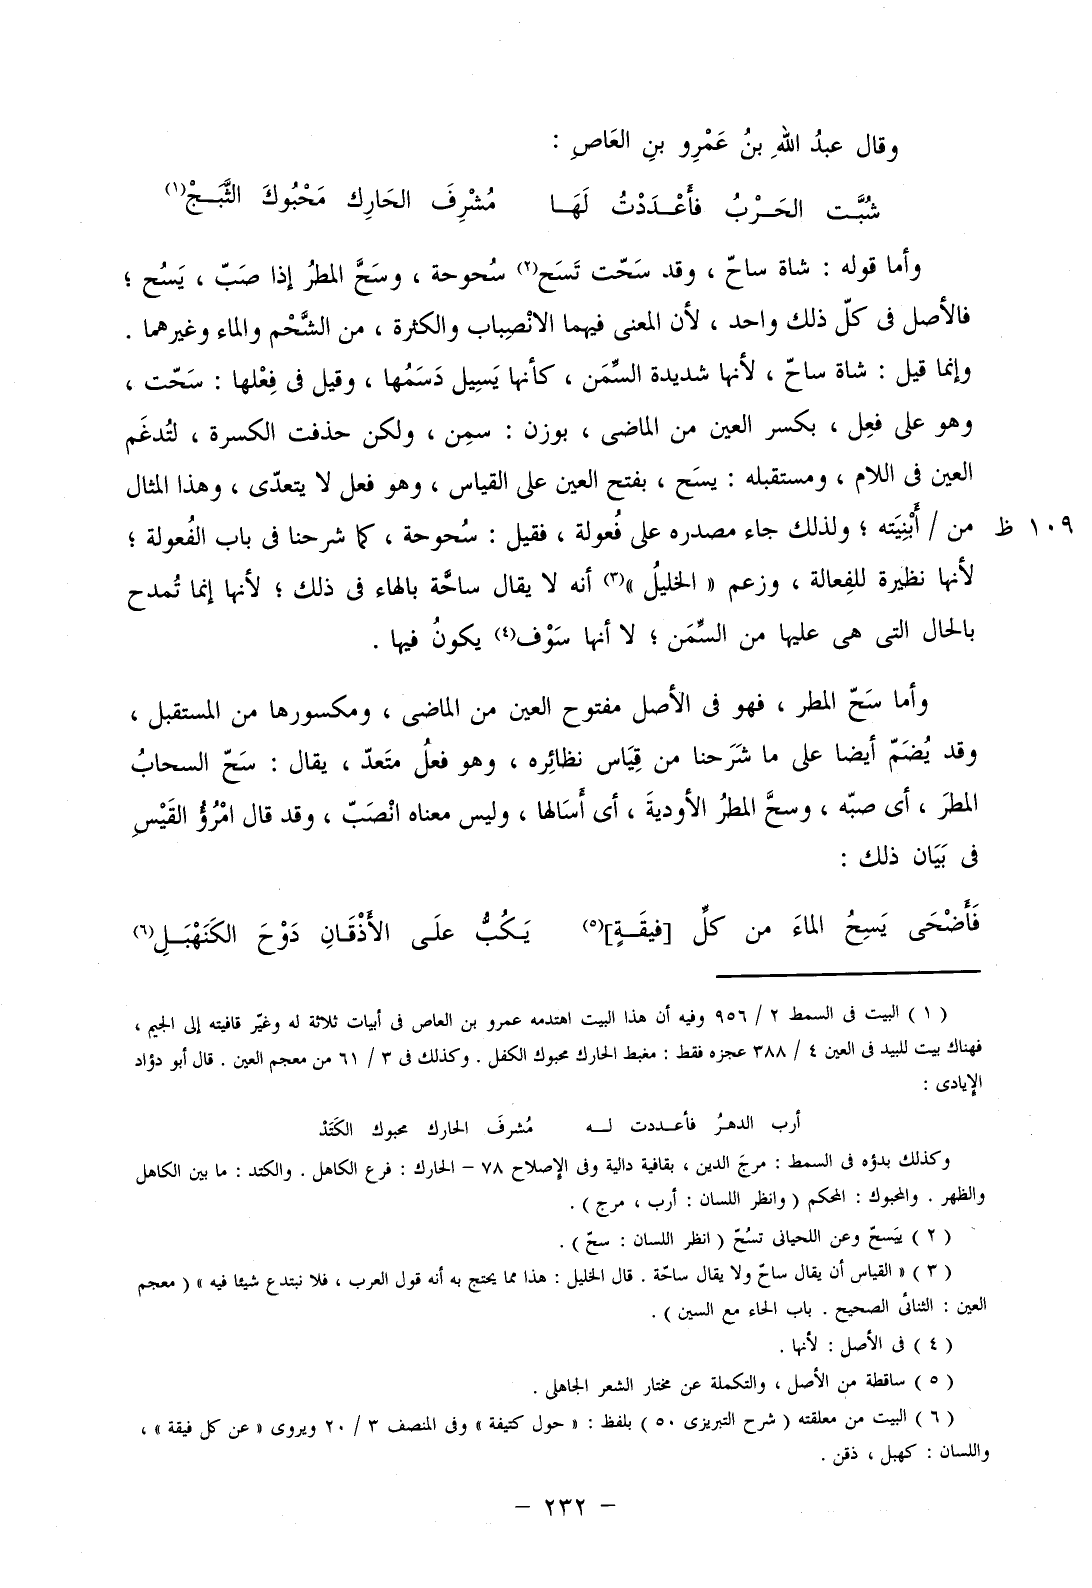 وقال عبدُ اللهِ بنُ عَمْرِو بنِ العَاصِ :
شُبَّت الحَرْبُ فأَعْدَدْتُ لَهَا مُشْرِفَ الحَارِك مَحْبُوكَ الثَّبَجْ(١)
وأما قوله : شاة ساحّ ، وقد سَحّت تَسَح(٢) سُحوحة ، وسَحَّ المطرُ إذا صَبّ ، يَسُح ؛
فالأصل فى كلّ ذلك واحد ، لأن المعنى فيهما الانْصِباب والكثرة ، من الشَّحْم والماء وغيرهما .
وإنما قيل : شاة ساحّ ، لأنها شديدة السِّمَن ، كأنها يَسِيل دَسَمُها ، وقيل فى فِعْلها : سَحّت ،
وهو على فعِل ، بكسر العين من الماضى ، بوزن : سمِن ، ولكن حذفت الكسرة ، لتُدغَم
العين فى اللام ، ومستقبله : يسَح ، بفتح العين على القياس ، وهو فعل لا يتعدّى ، وهذا المثال
من / أَبْنِيَته ؛ ولذلك جاء مصدره على فُعولة ، فقيل : سُحوحة ، كما شرحنا فى باب الفُعولة ؛ ١٠٩ ظ
لأنها نظيرة للفِعالة ، وزعم « الخليلُ »(٣) أنه لا يقال ساحَّة بالهاء فى ذلك ؛ لأنها إنما تُمدح
بالحال التى هى عليها من السِّمَن ؛ لا أنها سَوْف(٤) يكونُ فيها .
وأما سَحّ المطر ، فهو فى الأصل مفتوح العين من الماضى ، ومكسورها من المستقبل ،
وقد يُضَمّ أيضا على ما شَرَحنا من قِيَاس نظائِره ، وهو فعلُ متَعدّ ، يقال : سَحّ السحابُ
المطرَ ، أى صبّه ، وسحَّ المطرُ الأوديةَ ، أى أَسَالها ، وليس معناه انْصَبّ ، وقد قال امْرُؤُ القَيْسِ
فى بَيَان ذلك :
فَأَضْحَى يَسِحُ الماءَ من كلِّ [فيقَةٍ](٥) يَكبُّ علَى الأَذْقَانِ دَوْحَ الكَنَهْبَلِ(٦)
( ١ ) البيت فى السمط ٢ / ٩٥٦ وفيه أن هذا البيت اهتدمه عمرو بن العاص فى أبيات ثلاثة له وغيّر قافيته إلى الجيم ،
فهناك بيت للبيد فى العين ٤ / ٣٨٨ عجزه فقط : مغبط الحارك محبوك الكفل . وكذلك فى ٣ / ٦١ من معجم العين . قال أبو دؤاد
الإيادى :
أرب الدهرُ فأعددت له مُشرفَ الحارك محبوك الكَتَدْ
وكذلك بدؤه فى السمط : مرجَ الدين ، بقافية دالية وفى الإصلاح ٧٨ – الحارك : فرع الكاهل . والكتد : ما بين الكاهل
والظهر . والمحبوك : المحكم ( وانظر اللسان : أرب ، مرج ) .
( ٢ ) يَسحّ وعن اللحيانى تسُحّ ( انظر اللسان : سحّ ) .
( ٣ ) « القياس أن يقال ساحّ ولا يقال ساحّة . قال الخليل : هذا مما يحتج به أنه قول العرب ، فلا نبتدع شيئا فيه » ( معجم
العين : الثنائى الصحيح . باب الحاء مع السين ) .
( ٤ ) فى الأصل : لأنها .
( ٥ ) ساقطة من الأصل ، والتكملة عن مختار الشعر الجاهلى .
( ٦ ) البيت من معلقته ( شرح التبريزى ٥٠ ) بلفظ : « حول كتيفة » وفى المنصف ٣ / ٢٠ ويروى « عن كل فيقة » ،
واللسان : كهبل ، ذقن .
– ٢٣٢ –